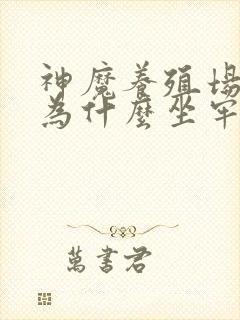 神魔養殖場
為什麼坐牢
萬書君